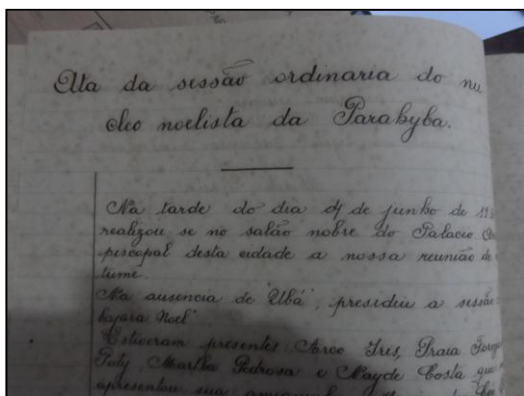 Ata da sessão ordinaria do nu
cleo noelista da Parahyba.
Na tarde do dia 4 de junho de 193
realizou se no salão nobre do Palacio E
piscopal desta cidade a nossa reunião de
tume.
Na ausencia de "Ubá", presidiu a sessão
Noel"
Estiveram presentes: Arco Iris, Praia
Paty, Martha Pedrosa e Nayde Costa que
apresentou sua